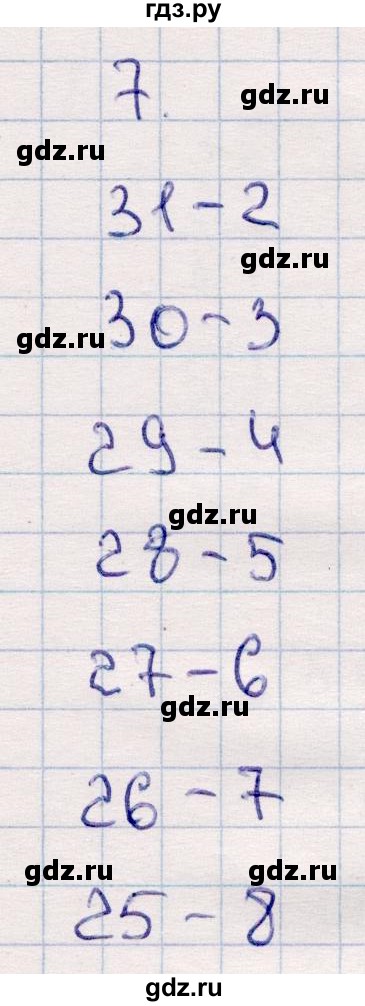 гдз.ру
7.
gdz.ru
gdz.ru
31 - 2
gdz.ru
30 - 3
gdz.ru
29 - 4
gdz.ru
28 - 5
27 - 6
gdz.ru
26 - 7
gdz.ru gdz.ru
25 - 8
gdz.ru